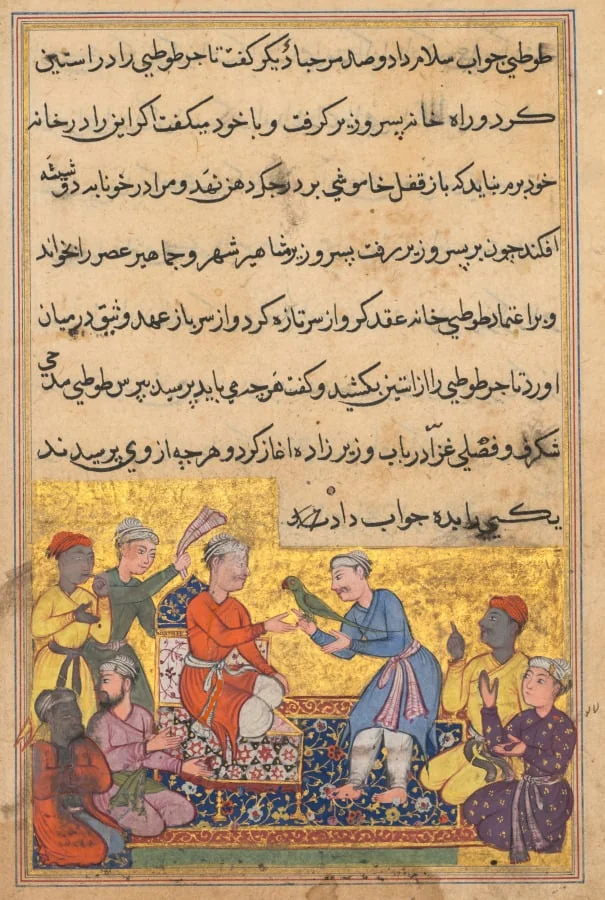 طوطیی جواب سلام داد و صد مرحبا دیگر گفت تاجر طوطیی را در استین
کرد و راه خانه پسر وزیر گرفت و با خود میگفت اگر این را در خانه
خود برم نباید که باز قفل خاموشی بر درجک دهن نهد و مرا در خونابه
افکند چون بر پسر وزیر رفت پسر وزیر مشاهیر شهر و جماهیر عصر را بخواند
و بر اعتماد طوطیی خانه عقد کرو از سر تازه کرد و از سر باز عهد وثیق در میان
اورد تاجر طوطیی را از استین بکشید و گفت هرچه می باید پرسید بپرس طوطیی مدحی
شکرف و فصلی غرّا در باب وزیر زاده اغاز کرد و هرچه از وی پرسیدند
یکیی را ده جواب داد